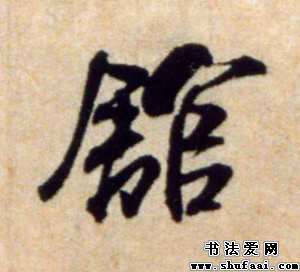 舘
书法爱网
www.shufaai.com